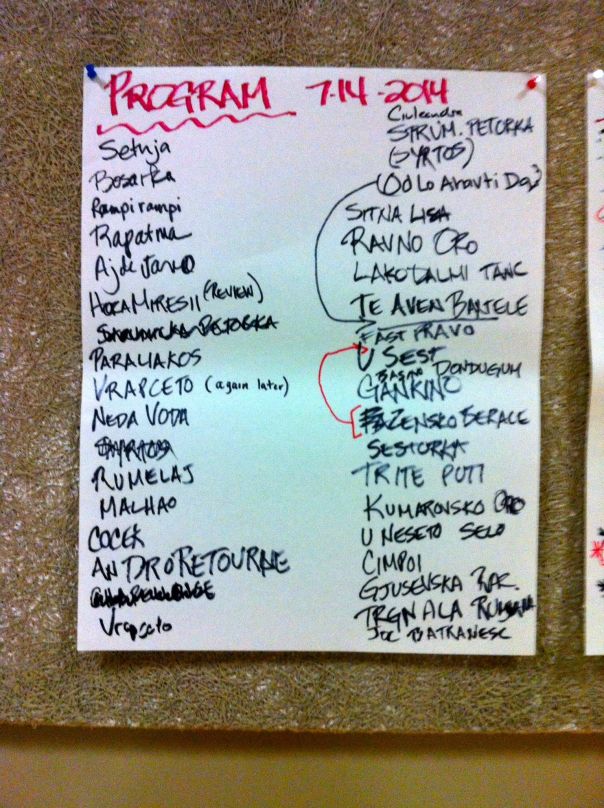 PROGRAM 7.14-2014
Setnja
Bosarka
Rampi rampi
Rapatma
Ajde Jano
HORA MIRESII (REVIEW)
PETORKA
PARALIAKOS
VRAPCETO (again later)
NEDA VODA
SYRTOS
RUMELAJ
MALHAO
COCEK
AN DRO RETOURNE
Vrapceto
Ciuleandra
STRUM. PETORKA
(SYRTOS)
(Od Lo
SITNA LISA
RAVNO ORO
LAKODALMI TANC
TE AVEN BAXTELE
FAST PRAVO
U SEST
BASMO DONDUGUM
GANKINO
ZENSKO BERACE
SESTORKA
TRITE PUTI
KUMANOVSKO ORO
U NESETO SELO
CIMPOI
GJUSEVSKA RAC.
TRGN ALA
JOC BATRANESC